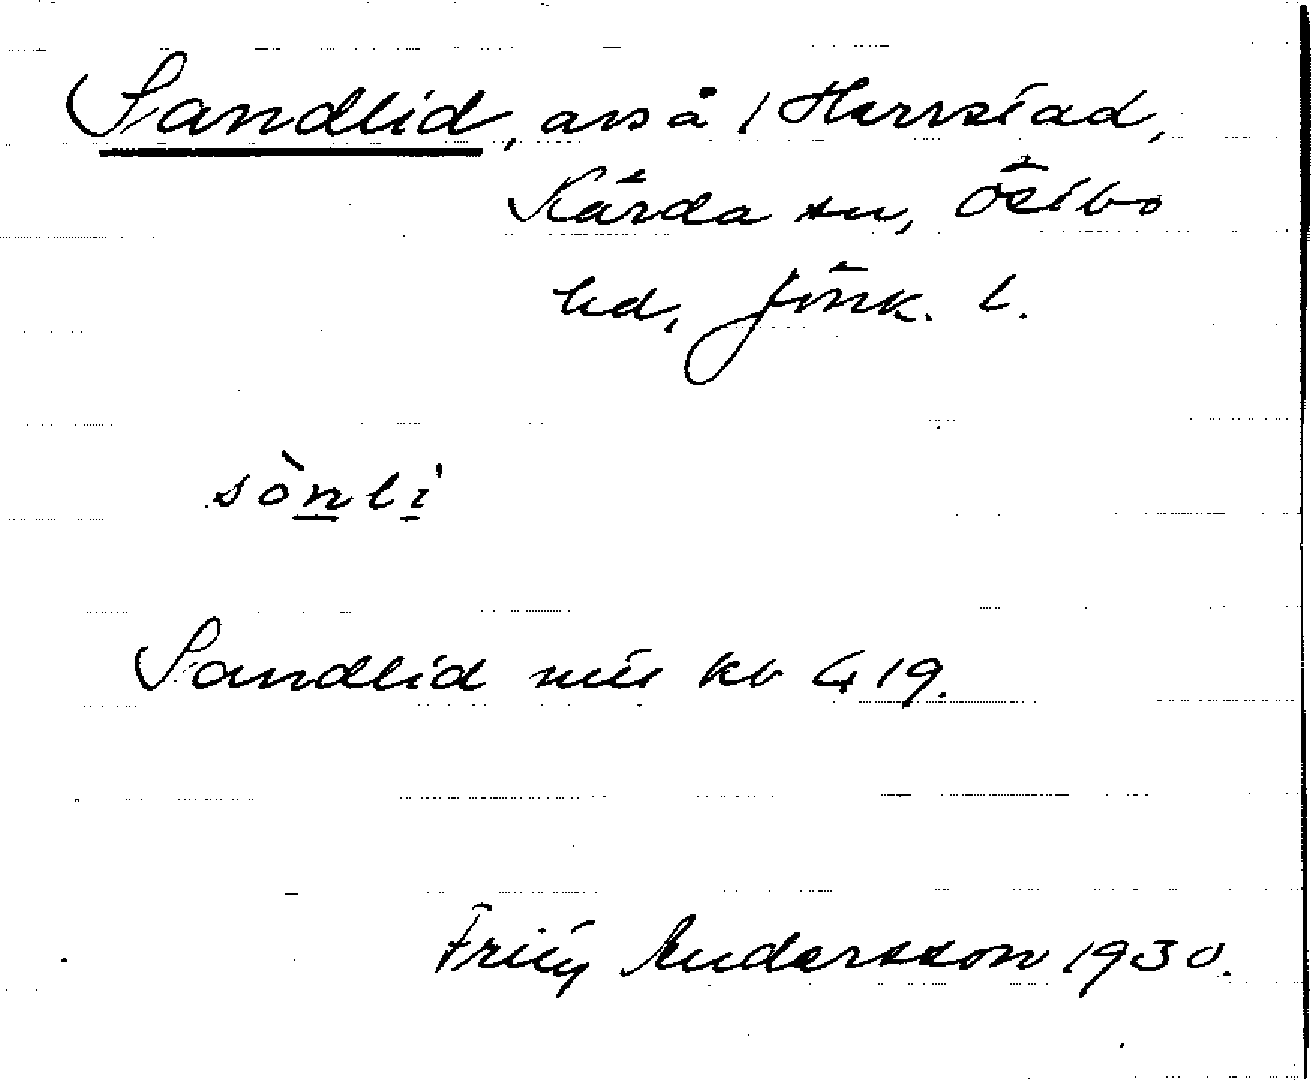 Sandlid, avs å / Herrstad,
Kärda sn, Östbo
hd, Jönk. l.
sònli
Sandlid kb 419.
Andersson 1930.